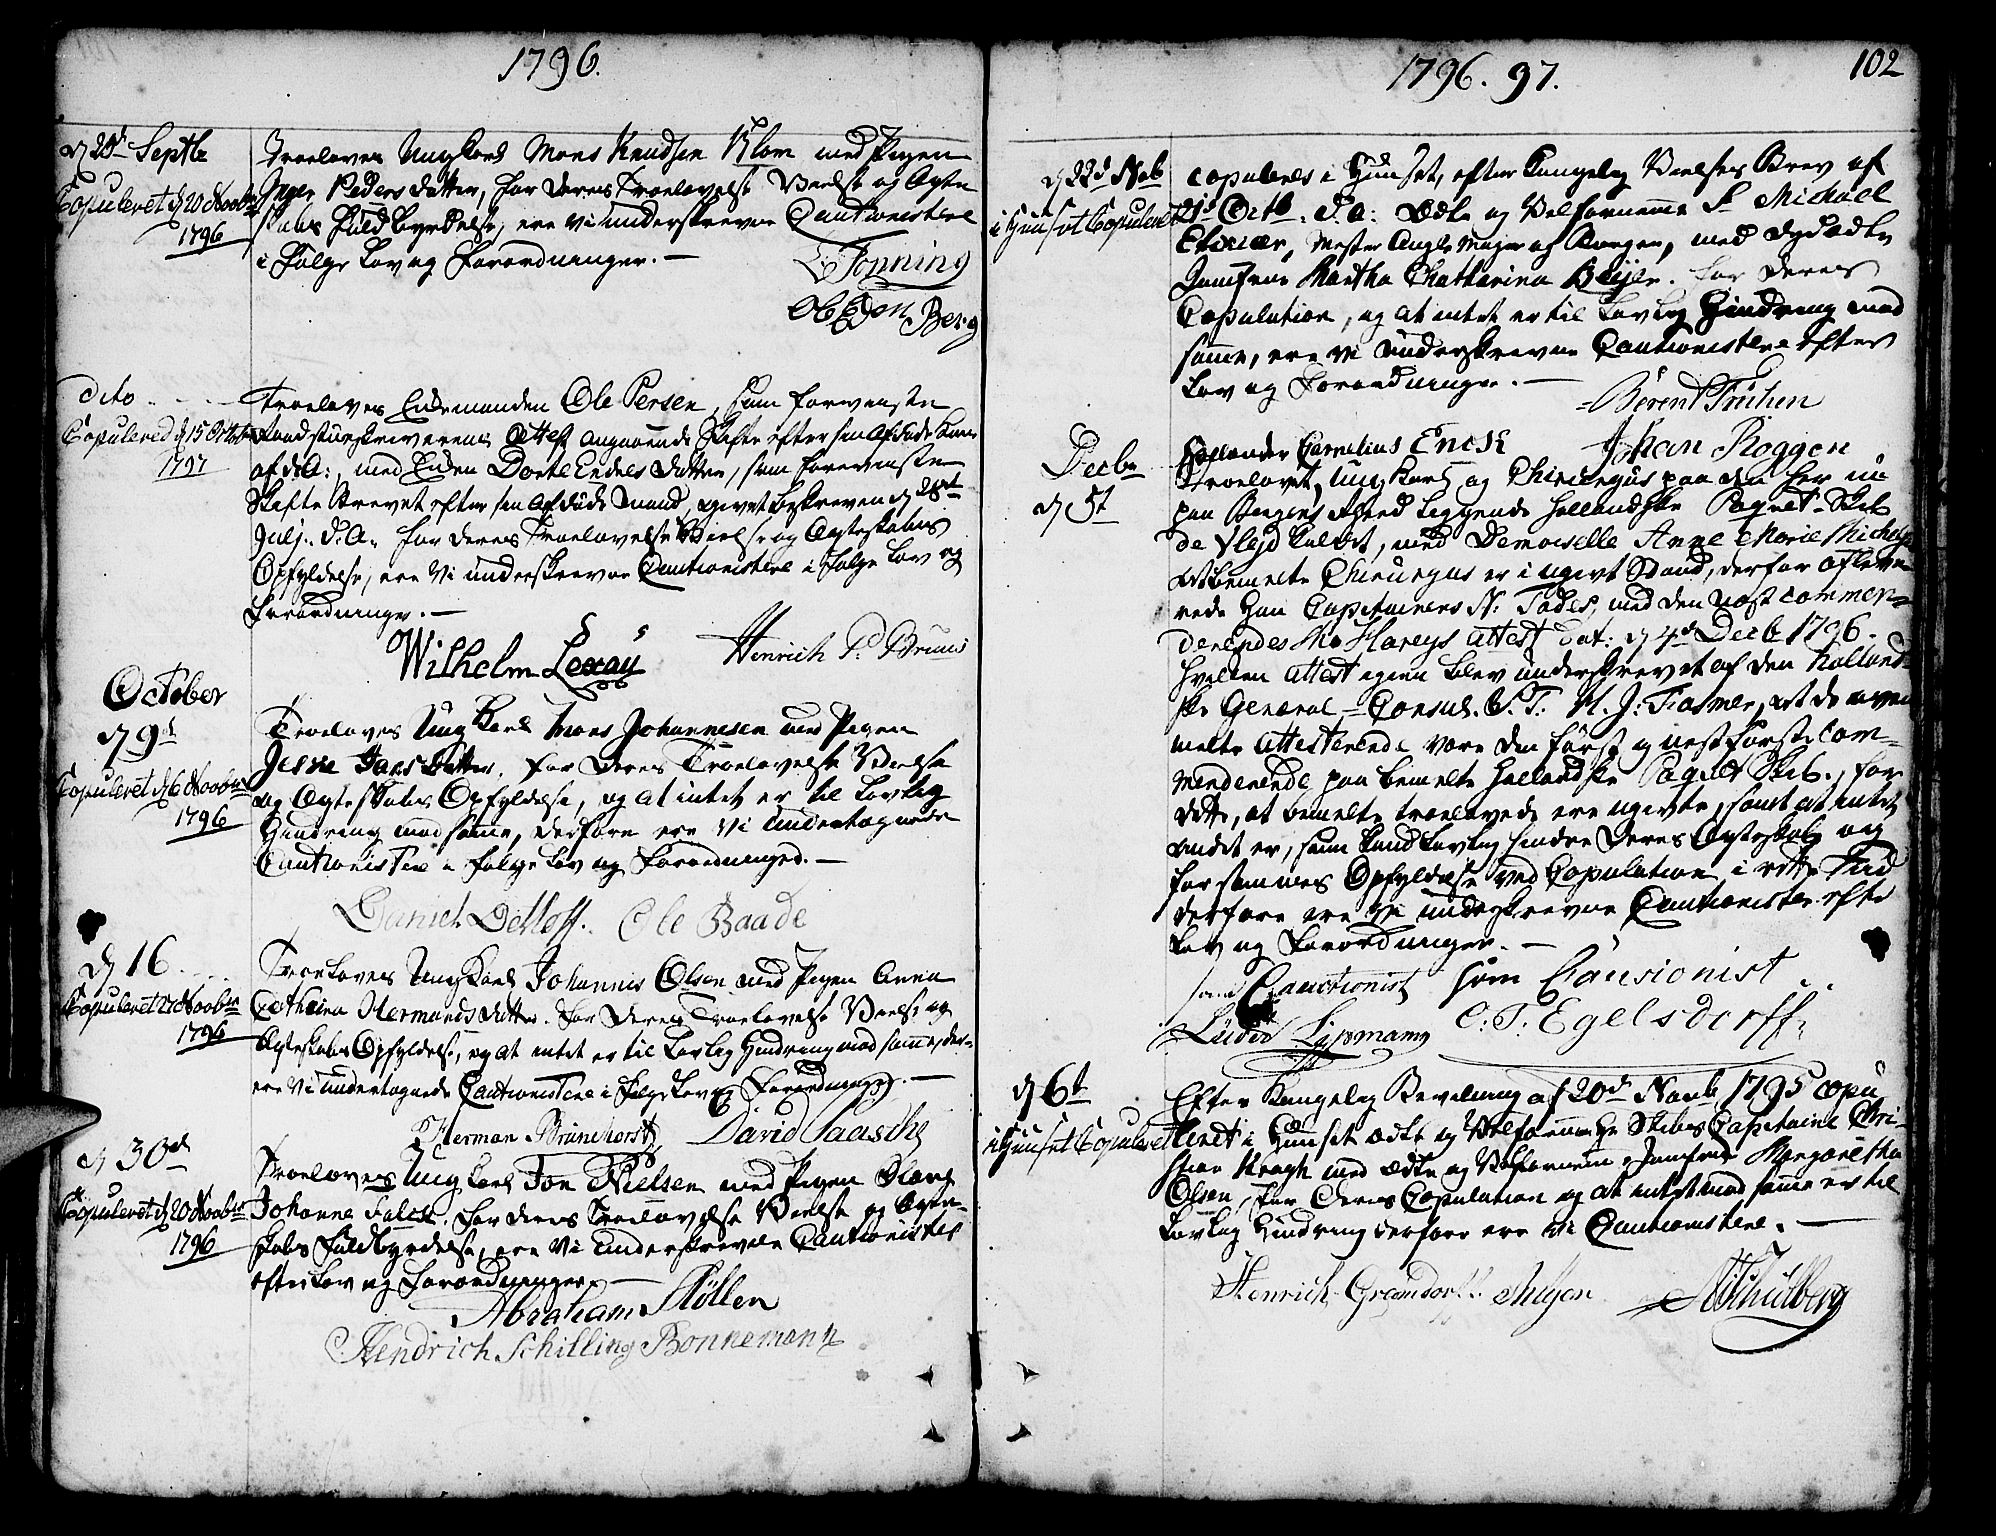 1796.
d 25d Septb
Copuleret d 20 Novbr
1796
Troeloves Ungkarl Mons Knudsen Klom med Pigen
Inger Peders datter, for deres Troelovelse Vielse og Ægte
skabs Fuldbyrdelse, ere vi underskrevne Cautionistere
i Følge Lov og Forordninger. —
Tonning
Berg
dito
Copulered d 15 Octobr
1797
Troeloves Enkemanden Ole Persen, som foreviiste
Raadstueskriverens Attest angaaende Skifte efter sin Afdøde Kone
af d. A:, med Enken Dorte Endres datter, som foreviiste
Skifte Brevet efter sin afdøde Mand, givet beskreven d 28de
Julj. d. A. for deres Troelovelse Vielse og Ægteskabs
Opfyldelse, ere Vi underskrevne Cautionistere i Følge Lov og
Forordninger. —
Wilhelm Lexau
Henrich P. Bruns
October
d 9d
Copuleret d 6 Novbr
1796
Troeloves Ung Karl Mons Johannesen med Pigen
Jesse Hans datter, for deres Troelovelse Vielse
og Ægteskabs Opfyldelse, og at intet er til Lovlig
Hindring mod samme, derfore ere Vi undertegnede
Cautionistere i følge Lov og Forordninger. —
Daniel Detloff. Ole Baade
d 16
Copuleret 27 Novbr
1796
Troeloves Ung Karl Johannis Olsen med Pigen Anna
Cathrina Hermands datter. for deres Troelovelse Vielse og
Ægteskabs Opfyldelse, og at intet er til Lovlig Hindring mod samme, der-
ere Vi undertegnede Cautionistere i Følge Lov og Forordninger. —
Herman Brunchorst David Paasche
d 30d
Copuleret d 20 Novbr
1796
Troeloves Ung Karl Jon Nielsen med Pigen
Johanne Falck. for deres Troelovelse Vielse og Ægte-
skabs Fuldbyrdelse, ere Vi Underskrevne Cautionister
efter Lov og Forordninger. —
Abraham Møllen
Hendrich Schilling Bonnemann
1796. 97.
102
d 22d Novb
i Huuset Copuleret
copuleres i Huuset, efter Kongelig Vielses Brev af
21d Octb. d. a: Ædle og Velfornemme Sr Michael
Mester af Bergen, med dydædle
Jomfrue Martha Chatharina Beyer. for deres
Copulation, og at intet er til Lovlig Hindring mod
samme, ere Vi underskrevne Cautionistere efter
Lov og Forordninger. —
Berent Friihen
Johan Roggen
Decbr
d 5t
Hollander Cornelius Enck
Troelovet, Ungkarl og Chirurgus paa den her nu
paa Bergens Reed liggende hollandske Paquet-Skib
de Vlejd kaldet, med Demoiselle Anne Marie Michels
at bemelte Chirurgus er i ugivt Stand, derfor afleve
rede han Capitainens N: Todes, med den næst commen-
derendes Attest Dat: d 4d Decb 1796.
hvilken Attest igien blev underskrevet af den holland-
ske General-Consul. S. T. H. J: Fasmer, at de oven
melte Attesterende vare den første og næst første com-
menderende paa bemelte Hollandske Paquet Skib., for
dette, at bemelte troelovede ere ugivte, samt at intet
andet er, som kand Lovlig hindre deres Ægteskab og
for sammes Opfyldelse ved Copulation i rette Tiid
derfore ere Vi underskrevne Cautionister efter
Lov og Forordninger. —
som Cauctionist som Causionist
Lüder Lipmann C. T. Egelsdorff
d 6t
i Huuset Copuleret
Efter Kongelig Bevilning af 20d Novb 1795 Copu
leret i Huuset ædle og Velfornemme Hr Skibs Capitaine Chri-
stian Kragh med ædle og Velfornemme Jomfrue Margaretha
Olsen, for deres Copulation og at intet mod samme er til
Lovlig Hindring derfore ere Vi Cautionistere. —
Henrich Grøndorff
Schulberg